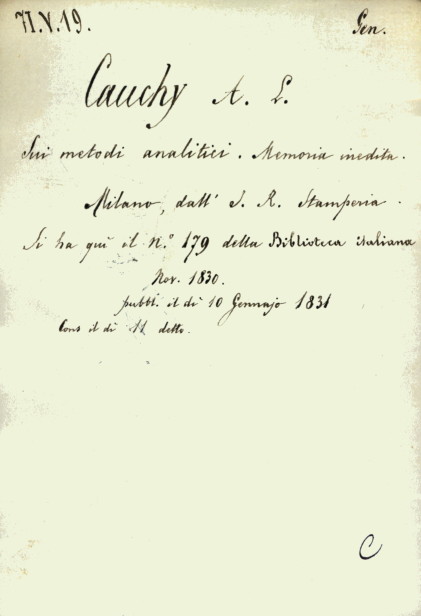 71.V.19. Gen.
Cauchy A. L.
Sui metodi analitici. Memoria inedita.
Milano, dall' I. R. Stamperia.
Si ha qui il n.° 179 della Biblioteca italiana
Nov. 1830.
pubbl. il dì 10 Gennajo 1831
Cons il dì 11 detto.
C